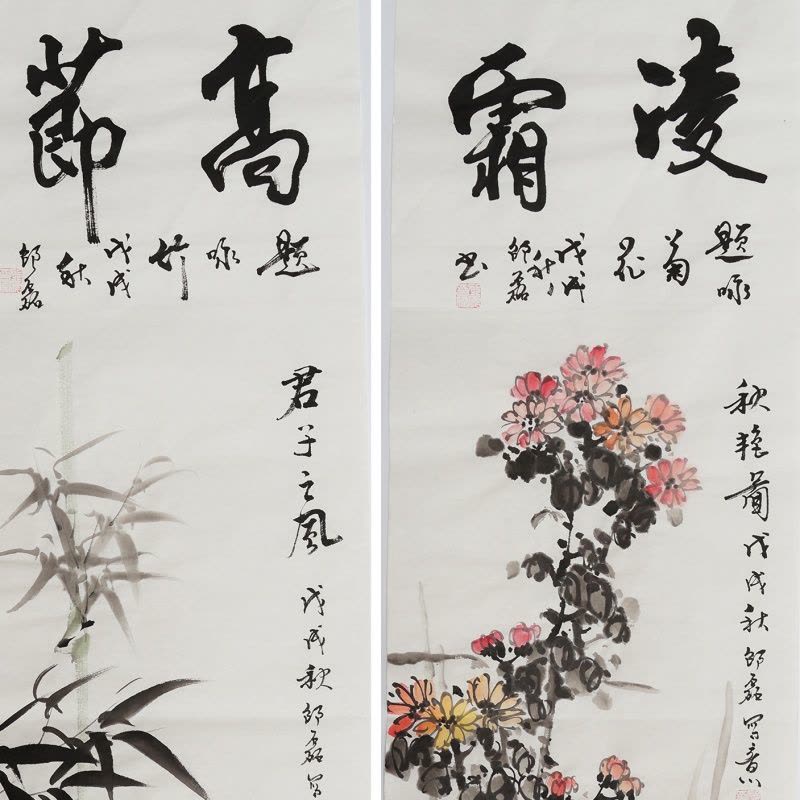 凌霜
题咏
菊
花
戊戌
秋
邵磊
书
秋艳圖 戊戌秋邵磊写意
高節
题
咏
竹
戊戌
秋
邵磊
君子之風 戊戌秋邵磊写